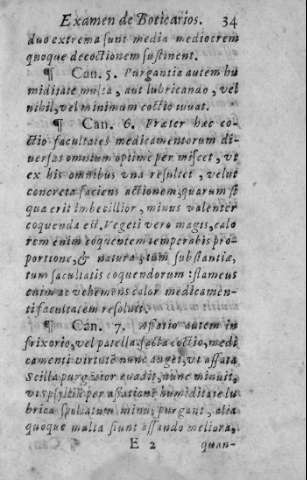 Examen de Boticarios. 34
duo extrema sunt media mediocrem
quoque decoctionem sustinent.
¶ Can. 5. Purgantia autem hu
miditate multa, aut lubricando, vel
nihil, vel minimum coctio iuuat.
¶ Can. 6. Præter hæc co-
ctio facultates medicamentorum di-
uersas omnium optime per miscet, vt
ex his omnibus vna resultet, velut
concreta faciens actionem, quarum si
qua erit imbecillior, minus valenter
coquenda est. Vegeti vero magis, calo
rem enim coquentem temperabis pro-
portione, & natura, tum substantiæ,
tum facultatis coquendorum : flameus
enim ac vehemens calor medicamen-
ti facultatem resoluit.
¶ Can. 7. Assatio autem in
frixorio, vel patella facta coctio, medi
camenti virtutē nunc auget, vt assata
Scilla purgatior euadit, nunc minuit,
vt psyllium per assationē humiditate lu
brica spoliatum minus purgant, alia
quoque multa fiunt assando meliora,
E 2 quan-